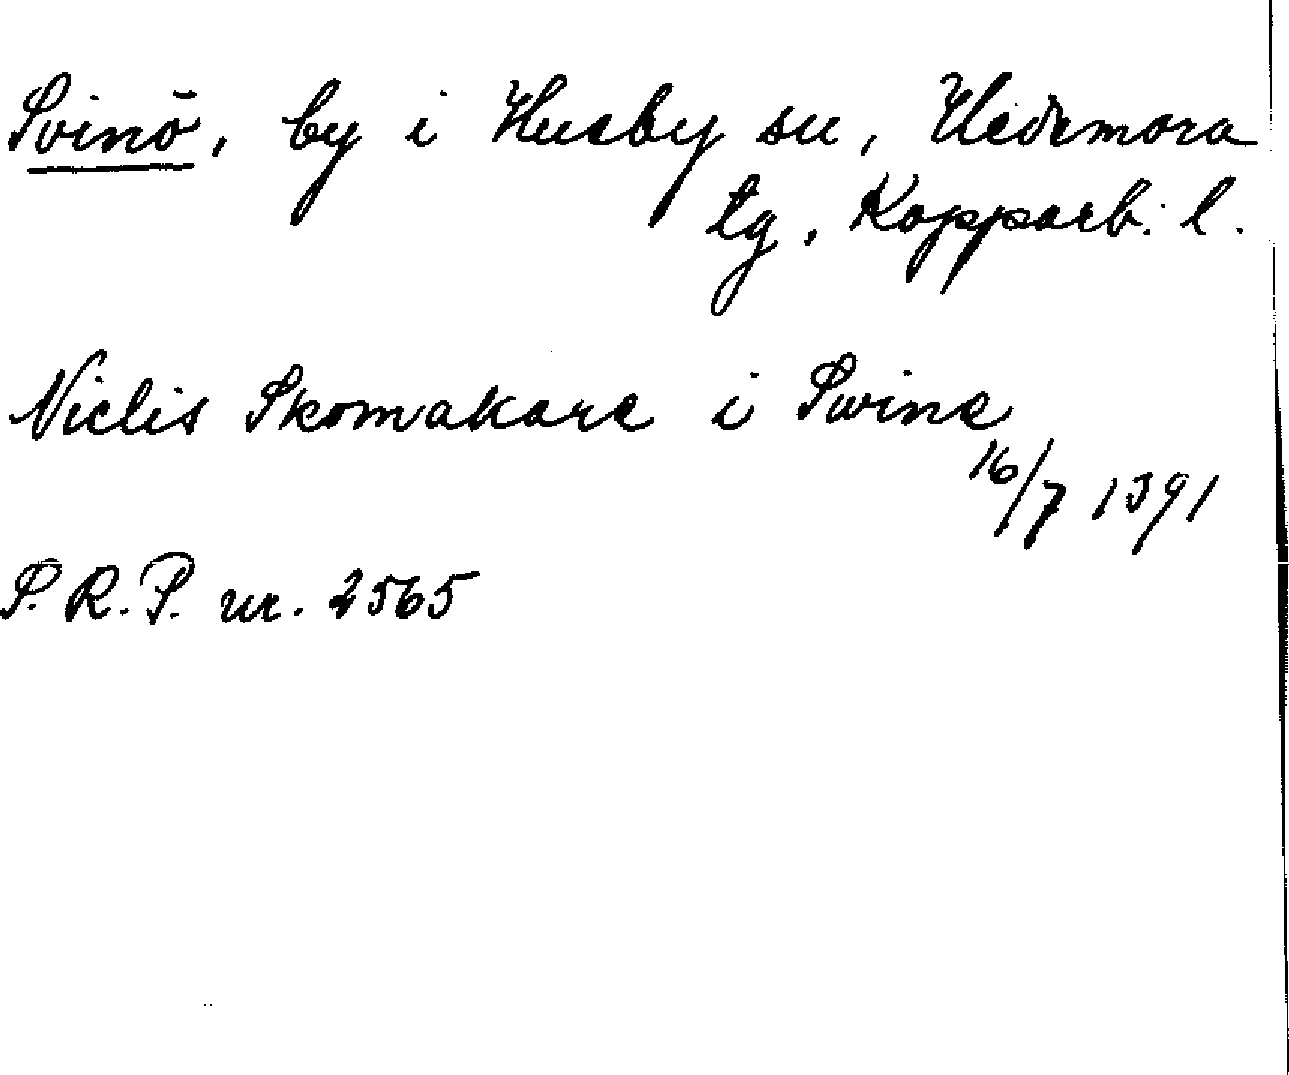 Svinö, by i Husby sn, Hedemora
tg, Kopparb. l.
Niclis Skomakare i Swine
16/7 1391
S. R. P. nr. 2565